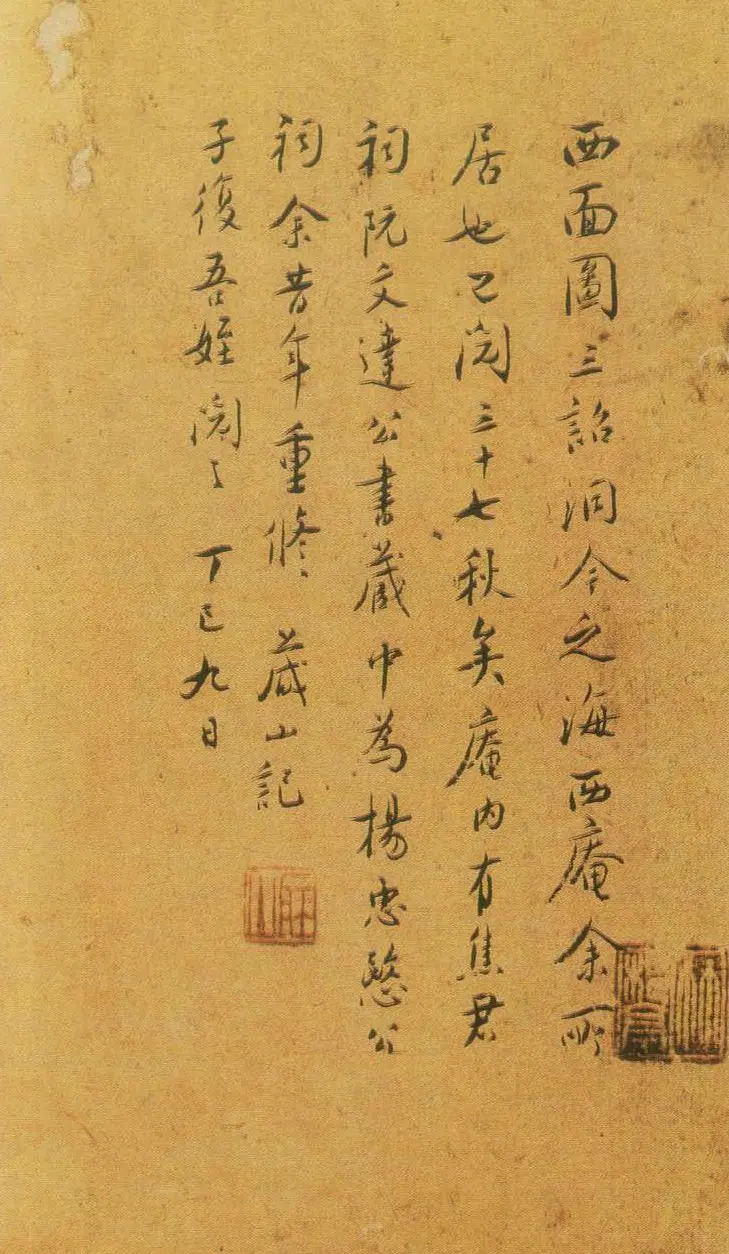 西面圖三詔洞今之海西庵余所
居也已閱三十七秋矣庵內有焦君
祠阮文達公書藏中為楊忠愍公
祠余昔年重修 藏山記
子復吾姪閱之 丁巳九日